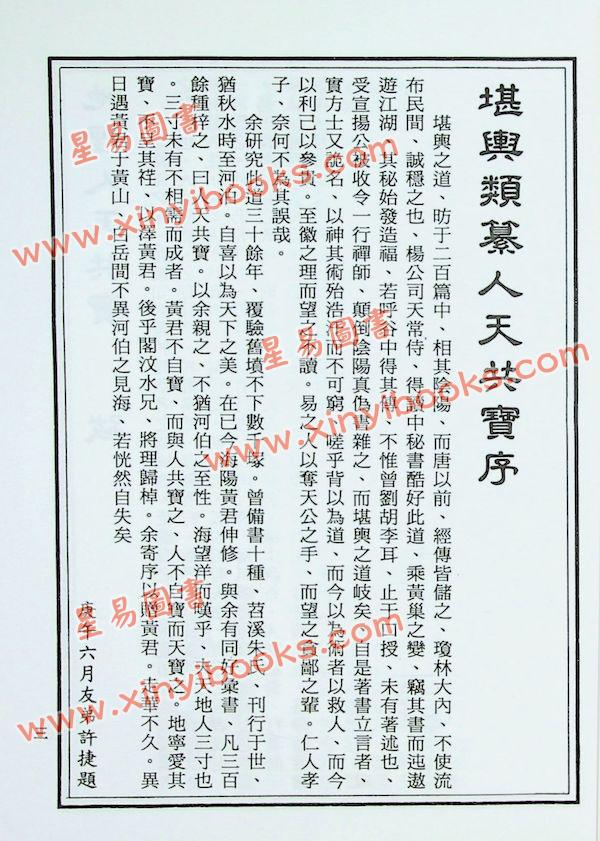 堪輿類纂人天共寶序
堪輿之道、昉于二百篇中、相其陰陽、而唐以前、經傳皆儲之、瓊林大內、不使流
布民間、誠穩之也、楊公司天常侍、得讀中秘書酷好此道、乘黃巢之變、竊其書而迍遨
遊江湖、其秘始發造福、若呼谷中得其傳、不惟曾劉胡李耳、止于口授、未有著述也、
受宣揚公被收令一行禪師、顛倒陰陽真偽書雜之、而堪輿之道岐矣、自是著書立言者、
實方士又詭名、以神其術殆浩汗而不可窮、嗟乎背以為道、而今以為術者以救人、而今
以利己以參贊。至徽之理而望之不讀。易之人以奪天公之手、而望之貪鄙之輩。仁人孝
子、奈何不為其誤哉。
余研究此道三十餘年、覆驗舊墳不下數千塚。曾備書十種、苕溪朱氏、刊行于世、
猶秋水時至河泊。自喜以為天下之美。在已今海陽黃君伸修。與余有同好彙書、凡三百
餘種梓之、曰人天共寶。以余親之、不猶河伯之至性。海望洋而嘆乎、夫天地人三寸也
。三寸未有不相謌而成者。黃君不自寶、而與人共寶之、人不自寶而天寶之。地寧愛其
寶、不呈其祥、以澤黃君。後乎閣汶水兄、將理歸棹。余寄序以贈黃君。走華不久。異
日遇黃君于黃山、白岳間不異河伯之見海、若恍然自失矣
庚午六月友弟許捷題
三
星易圖書
www.xinyibooks.com
星易圖書
www.xinyibooks.com
星易圖書
www.xinyibooks.com